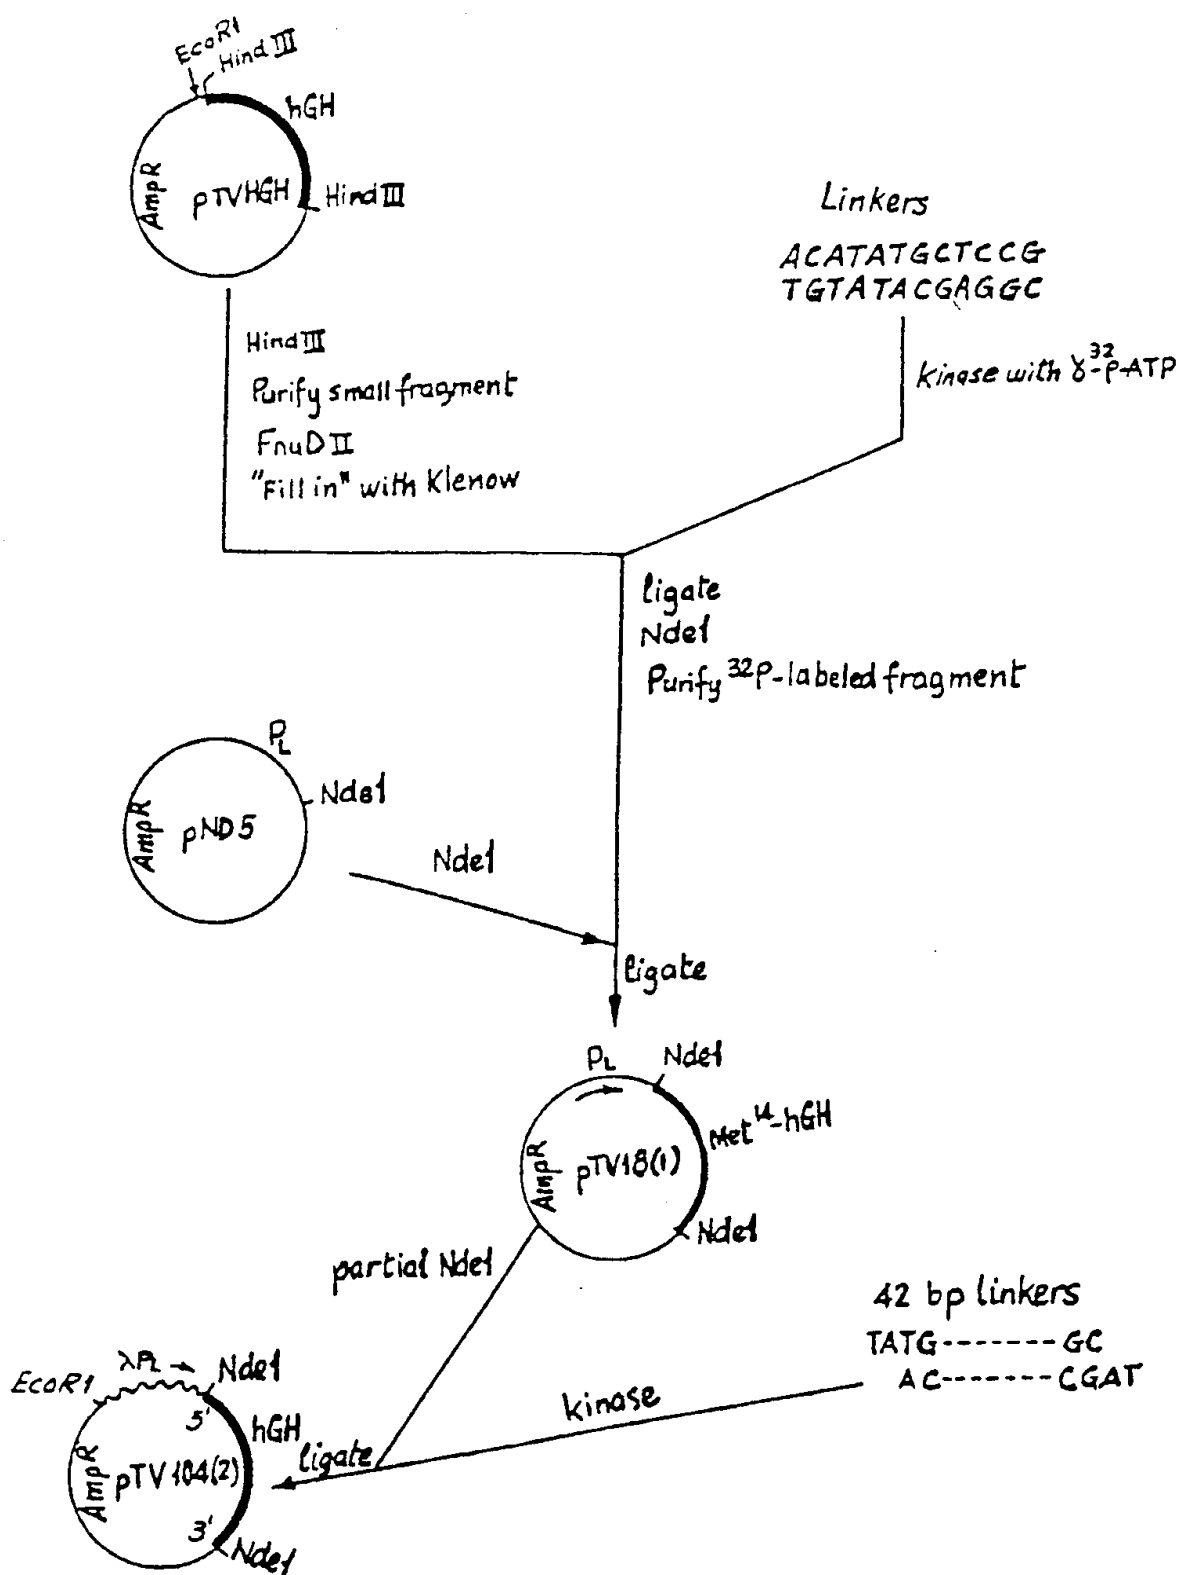 EcoR1
Hind III
hGH
AmpR
pTVHGH
Hind III
Linkers
ACATATGCTCCG
TGTATACGAGGC
Hind III
Purify small fragment
FnuD II
"Fill in" with Klenow
kinase with γ-³²P-ATP
ligate
Nde1
Purify ³²P-labeled fragment
PL
Nde1
AmpR
pND5
Nde1
ligate
PL
Nde1
Met¹⁴-hGH
AmpR
pTV18(1)
Nde1
partial Nde1
42 bp linkers
TATG-------GC
AC-------CGAT
kinase
ligate
λPL
Nde1
EcoR1
5'
hGH
AmpR
pTV104(2)
3'
Nde1